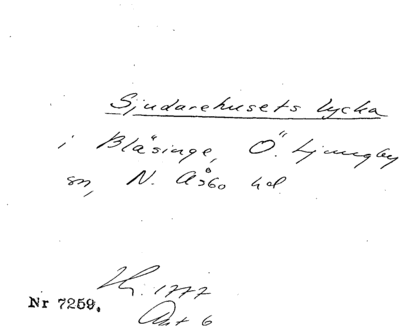 Sjudarehusets lycka
i Bläsinge, Ö. Ljungby
sn, N. Åsbo hd
1777
Akt 6
Nr 7259.